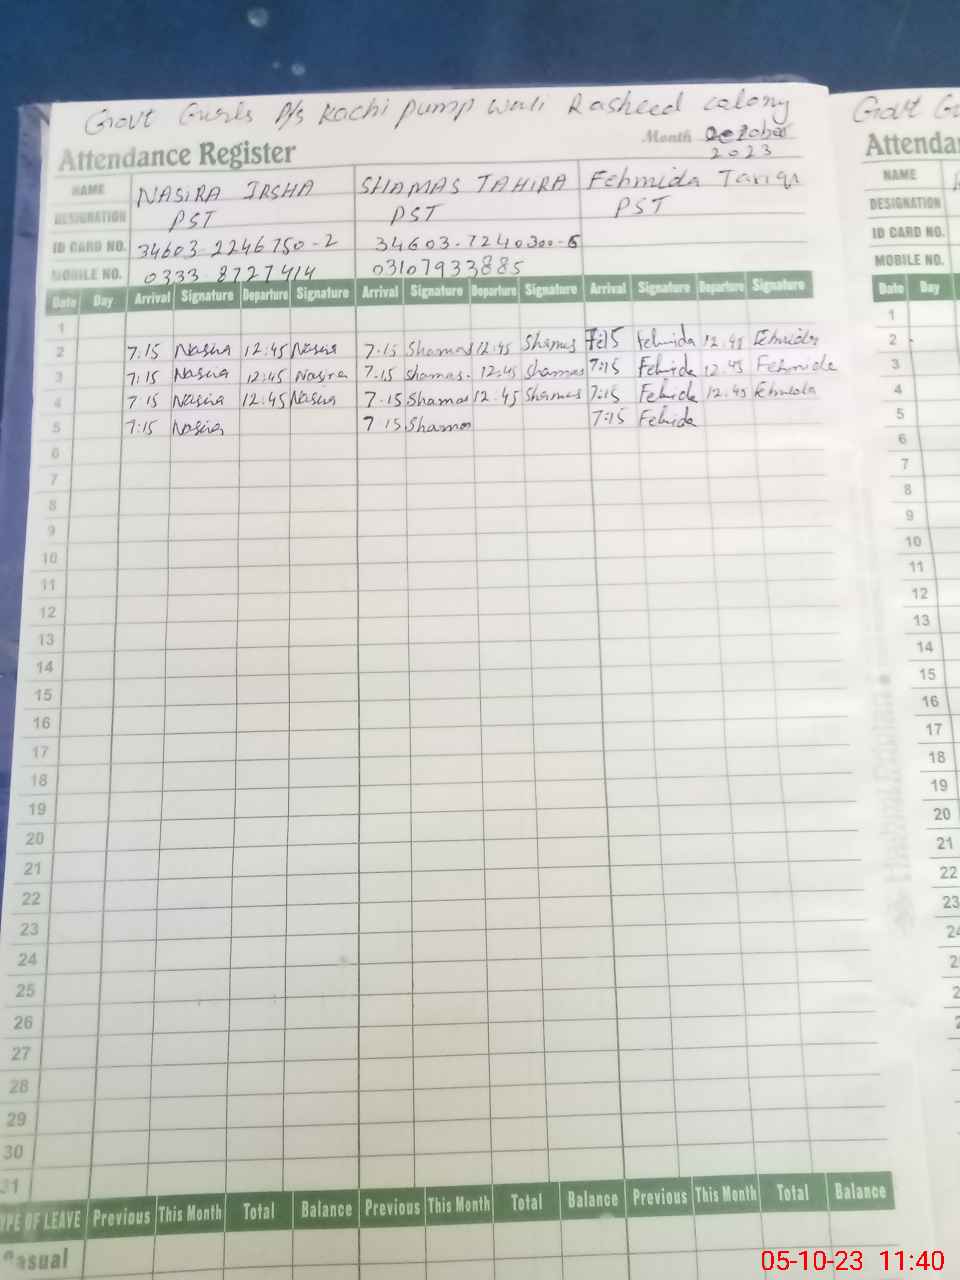 Govt Gurls P/s Kachi pump wali Rasheed colony
Govt
Month October
2023
Attendance Register
NAME NASIRA IRSHA SHAMAS TAHIRA Fehmida Tariq
DESIGNATION PST PST PST
ID CARD NO. 34603-2246750-2 34603-7240300-6
MOBILE NO. 0333 8727414 03107933885
Date Day Arrival Signature Departure Signature Arrival Signature Departure Signature Arrival Signature Departure Signature
1
2 7:15 Nasira 12:45 Nasira 7:15 Shamas 12:45 Shamas 7:15 Fehmida 12:45 Fehmida
3 7:15 Nasira 12:45 Nasira 7.15 Shamas. 12:45 Shamas 7:15 Fehmida 12.45 Fehmida
4 7 15 Nasira 12:45 Nasira 7.15 Shamas 12.45 Shamas 7:15 Fehmida 12.45 Fehmida
5 7:15 Nasira 7 15 Shamas 7:15 Fehmida
6
7
8
9
10
11
12
13
14
15
16
17
18
19
20
21
22
23
24
25
26
27
28
29
30
31
TYPE OF LEAVE Previous This Month Total Balance Previous This Month Total Balance Previous This Month Total Balance
Casual
NAME
DESIGNATION
ID CARD NO.
MOBILE NO.
Date Day
1
2
3
4
5
6
7
8
9
10
11
12
13
14
15
16
17
18
19
20
21
22
23
05-10-23 11:40